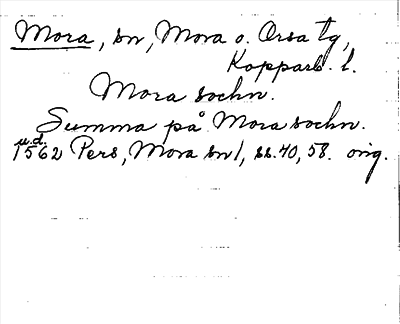 Mora, sn, Mora o. Orsa tg,
Kopparb. l.
Mora sochn.
Summa på Mora sochn.
u.d.
1562 Pers, Mora sn 1, ss. 40, 58. orig.